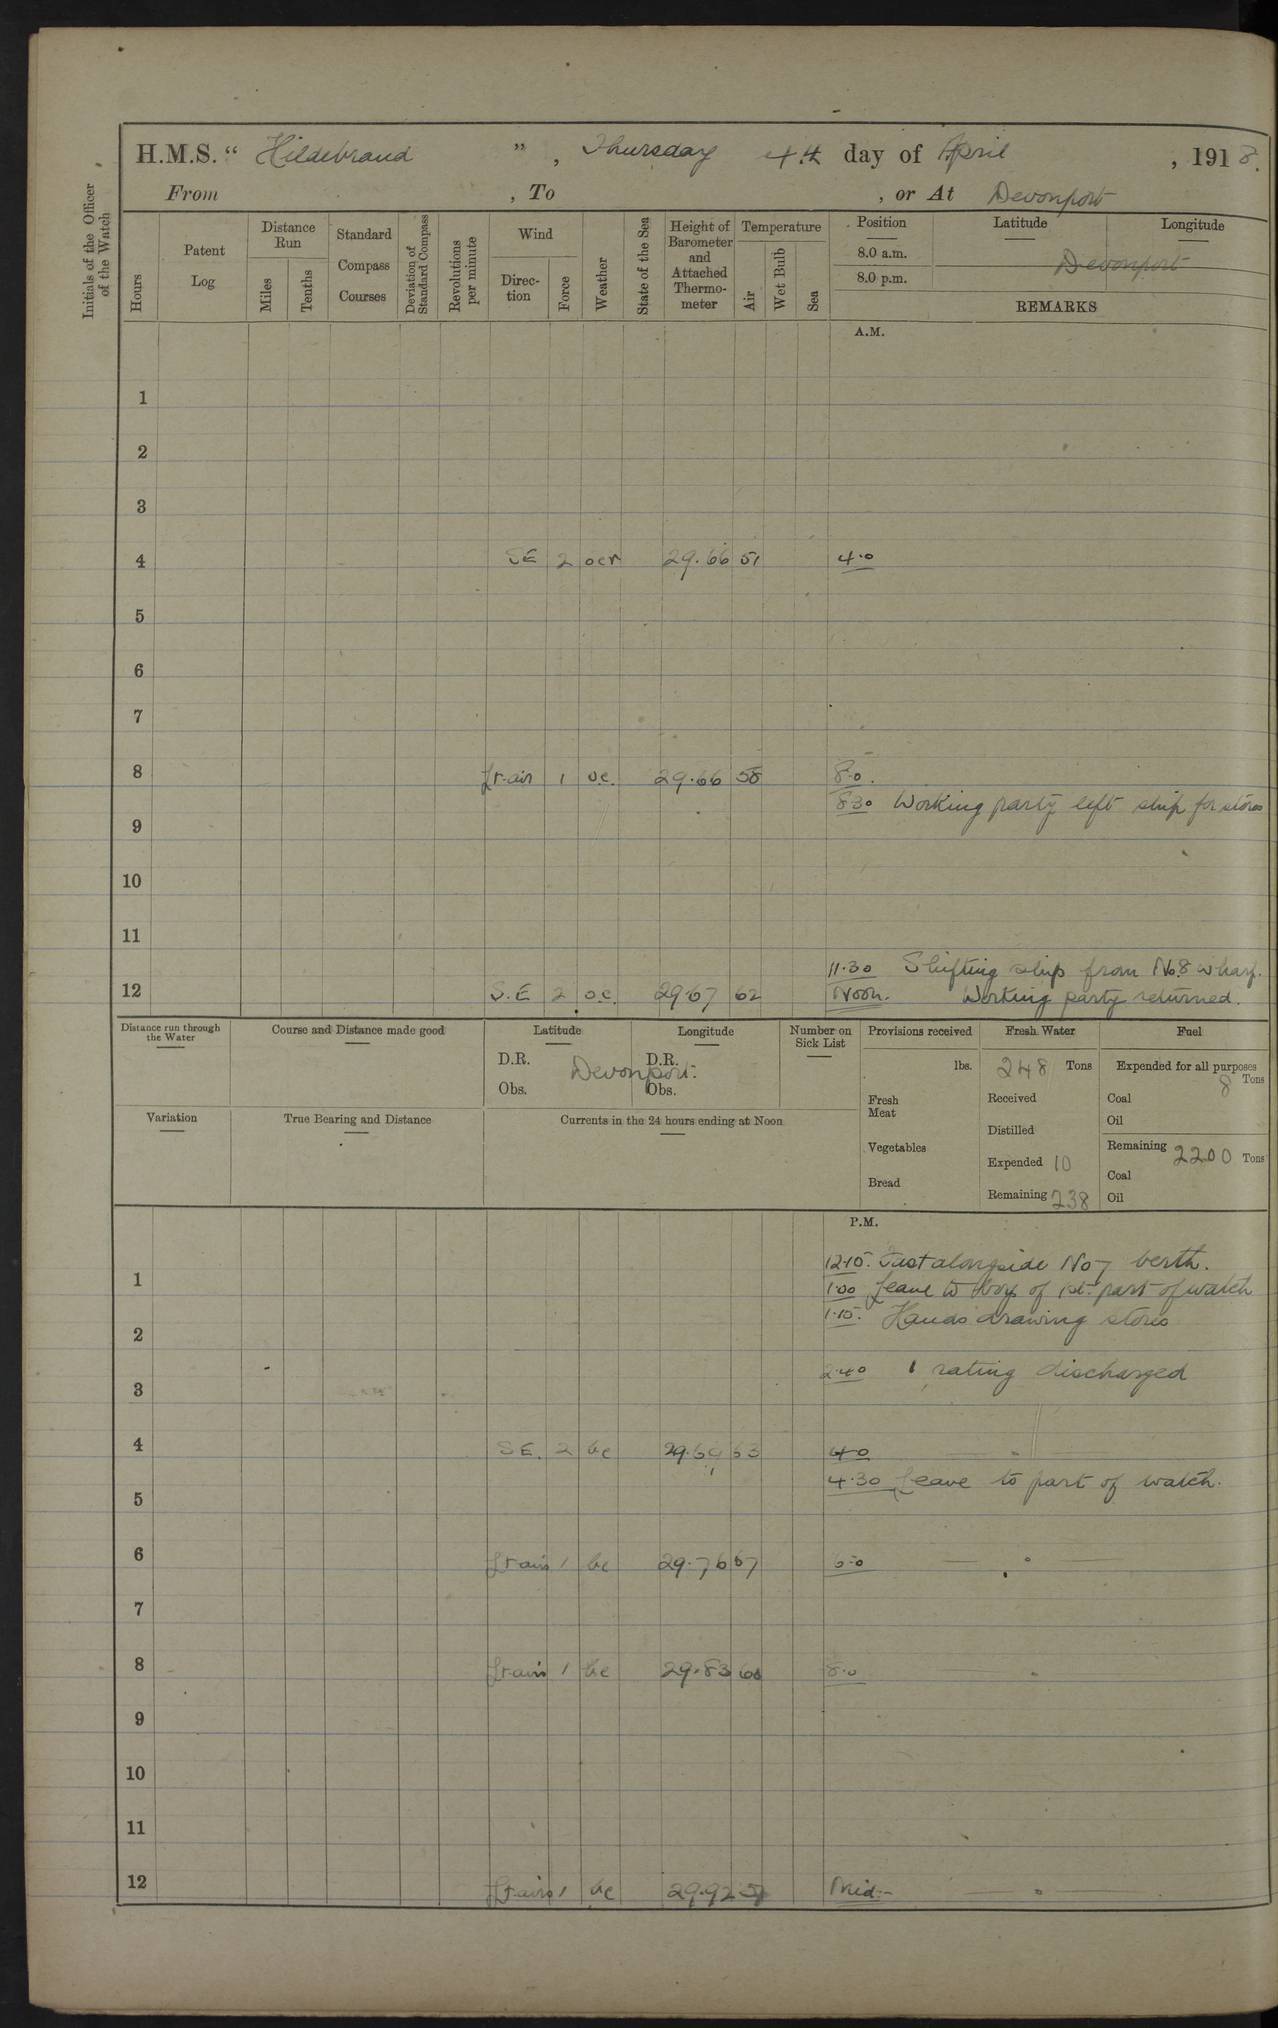 H.M.S. “ Hildebrand ” , Thursday 4th day of April , 1918.
From , To , or At Devonport
Initials of the Officer of the Watch
Hours
Patent Log
Distance Run
Miles
Tenths
Standard Compass Courses
Deviation of Standard Compass
Revolutions per minute
Wind
Direc-tion
Force
Weather
State of the Sea
Height of Barometer and Attached Thermo-meter
Temperature
Air
Wet Bulb
Sea
Position Latitude Longitude
8.0 a.m.
8.0 p.m.
Devonport
REMARKS
A.M.
1
2
3
4 SE 2 ocr 29.66 51 4.0
5
6
7
8 Lt air 1 o.c. 29.66 58 8.0.
8.30 Working party left ship for stores
9
10
11
11.30 Shifting ship from No.8 wharf.
12 S.E 2 o.c. 29.67 62 Noon. Working party returned.
Distance run through the Water
Course and Distance made good
Latitude
D.R.
Obs.
Longitude
D.R.
Obs.
Devonport.
Number on Sick List
Provisions received
lbs.
Fresh Meat
Vegetables
Bread
Fresh Water
248 Tons
Received
Distilled
Expended 10
Remaining 238
Fuel
Expended for all purposes
8 Tons
Coal
Oil
Remaining 2200 Tons
Coal
Oil
Variation
True Bearing and Distance
Currents in the 24 hours ending at Noon
P.M.
12.15. Fast alongside No 7 berth.
1 1.00 Leave to boys of 1st part of watch
1.15. Hands drawing stores
2
2.40 1 rating discharged
3
4 SE. 2 bc 29.69 63 4.0
4.30 Leave to part of watch.
5
6 Lt airs 1 bc 29.76 67 6.0
7
8 Lt airs 1 bc 29.83 60 8.0
9
10
11
12 Lt airs 1 bc 29.92 Mid.